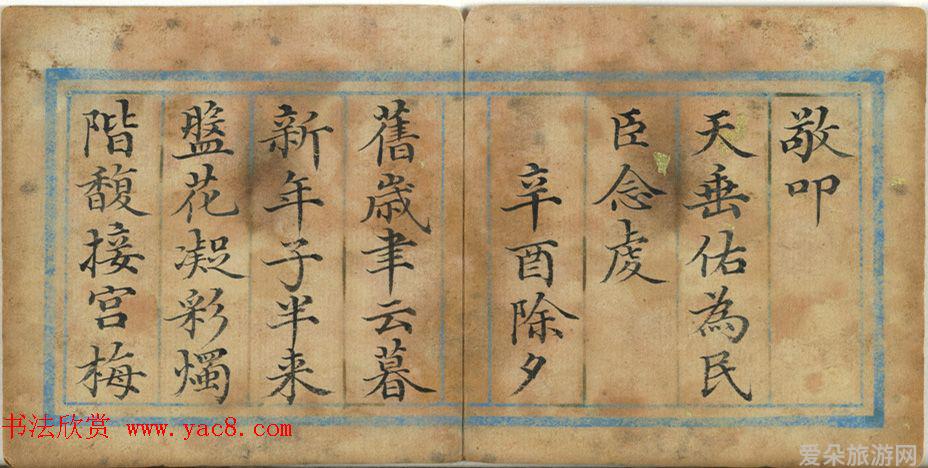 敬叩
天垂佑為民
臣念虔
辛酉除夕
舊歲聿云暮
新年子半来
盤花凝彩燭
階馥接宮梅
书法欣赏 www.yac8.com
爱朵旅游网